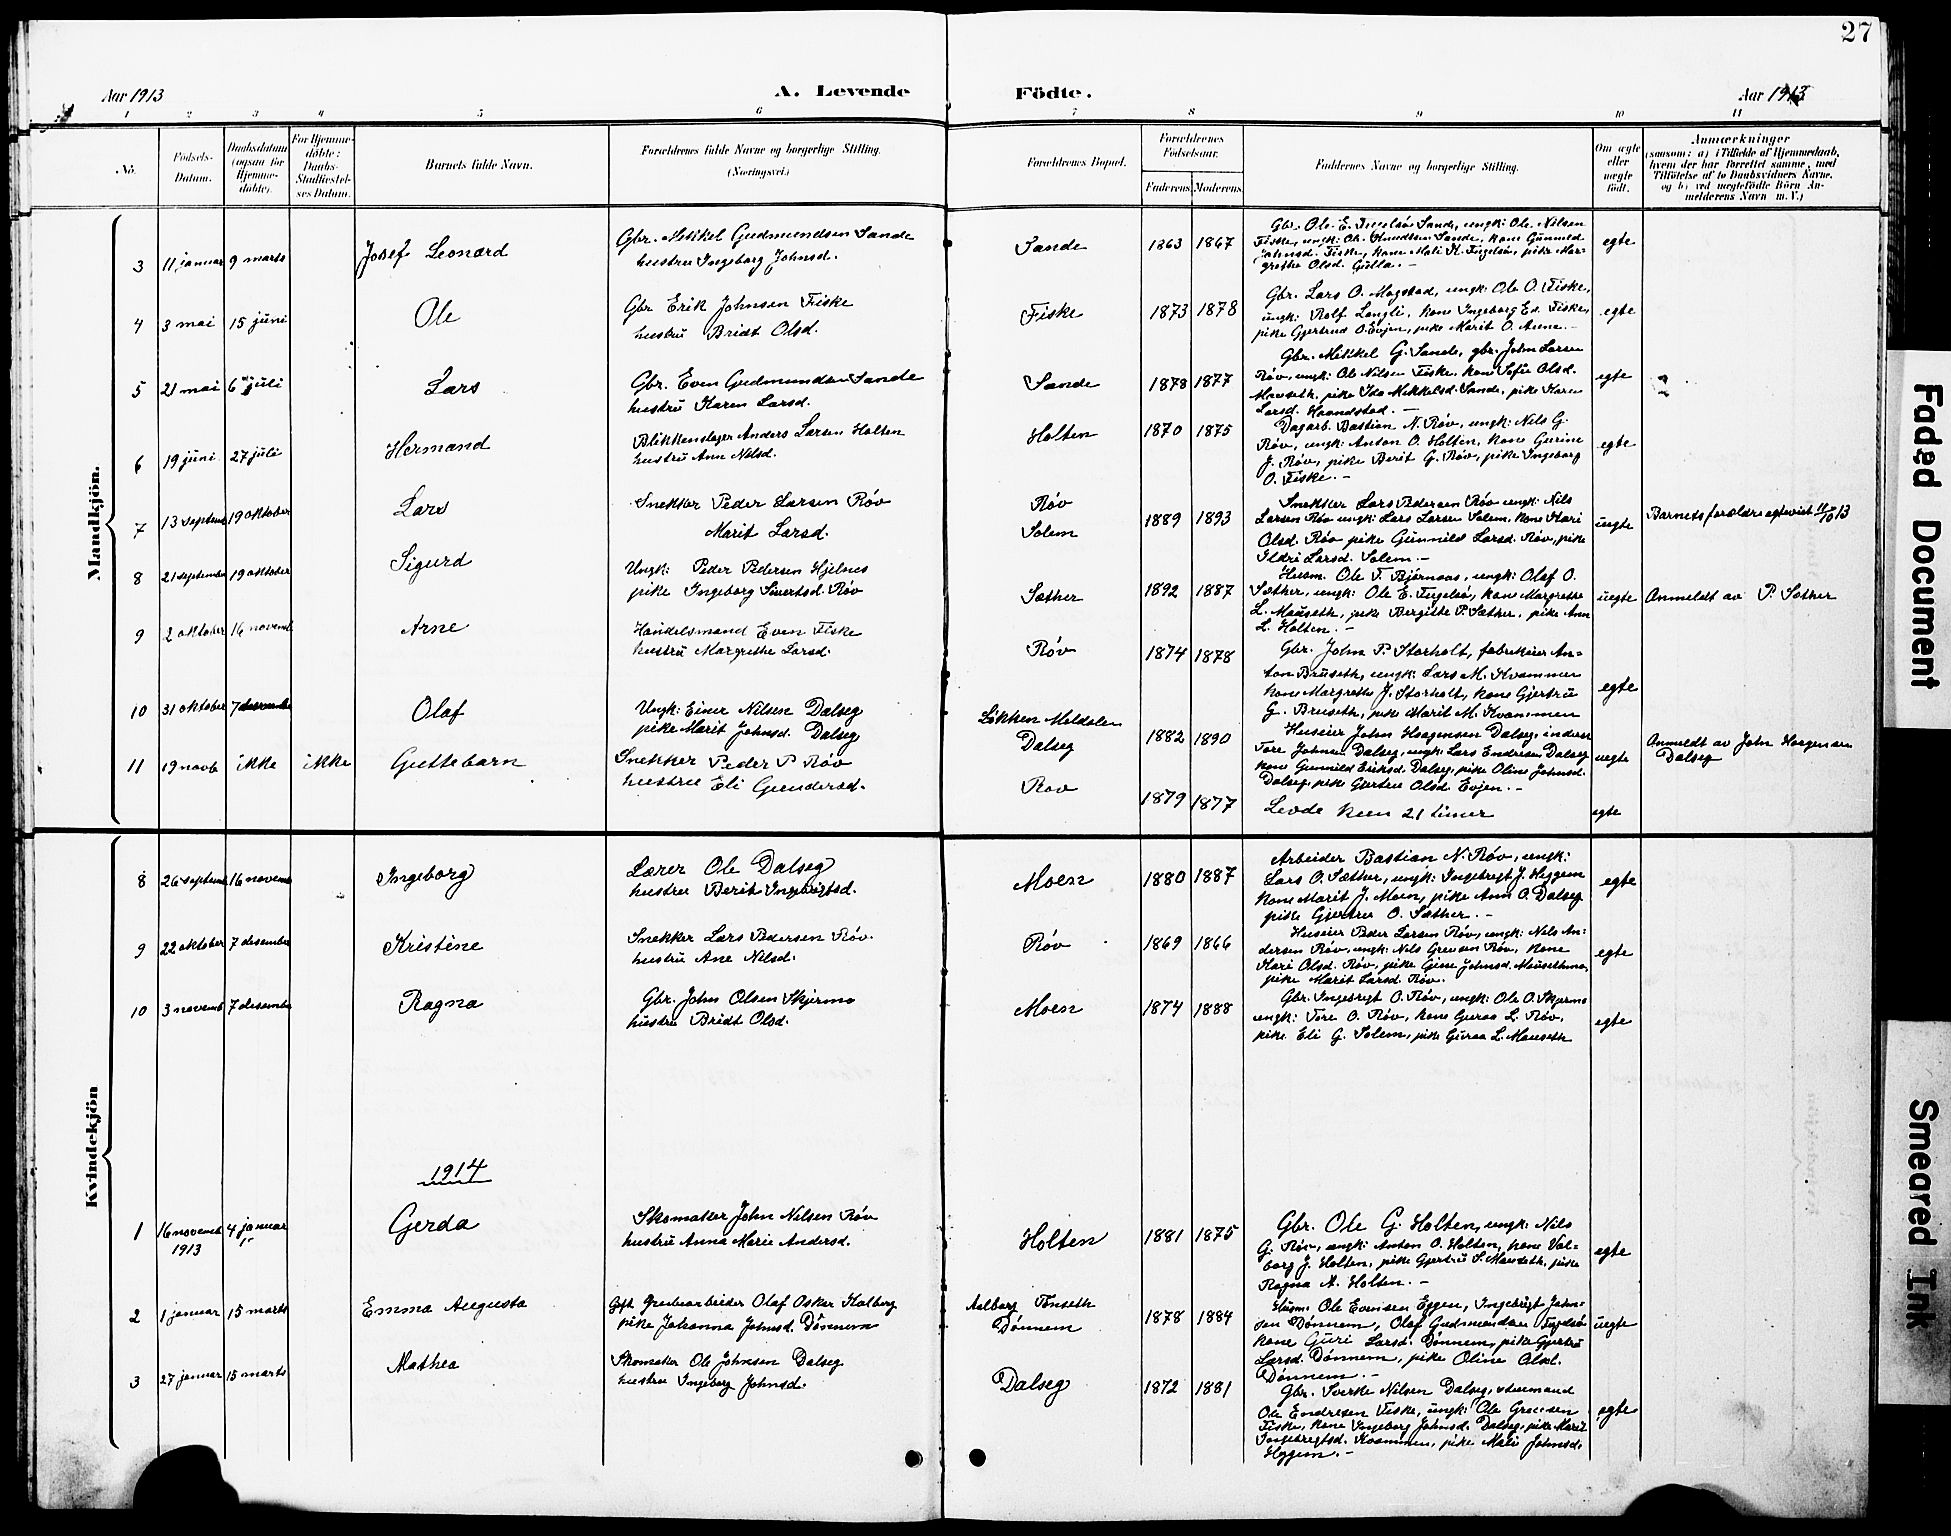 27
Aar 1913
A. Levende
Födte.
Aar 1913
1 2 3 4 5 6 7 8 9 10 11
No.
Födsels-Datum.
Daabsdatum (ogsaa for Hjemmedöbte).
For Hjemmedöbte: Daabs-Stadfæstelses Datum.
Barnets fulde Navn.
Forældrenes fulde Navne og borgerlige Stilling.
(Næringsvei.)
Forældrenes Bopæl.
Forældrenes Födselsaar.
Faderens. Moderens.
Faddernes Navne og borgerlige Stilling.
Om ægte eller uægte födt.
Anmærkninger
(saasom: a) i Tilfælde af Hjemmedaab, hvem der har forrettet samme, med Tilföielse af to Daabsvidners Navne, og b) ved uægtefödte Börn Anmelderens Navn m. V.)
Mandkjön.
3 11 januar 9 marts Josef Leonard
Gbr. Mikkel Gudmundsen Sande
hustru Ingeborg Johnsd.
Sande 1863 1867
Gbr. Ole E. Sande, ungk: Ole Nilsen
Fiske, ungk: Ole Knudtsen Sande, kone Gunnild
Johnsd. Fiske, kone Mali K. pike Mar-
grethe Olsd. Gulla. —
egte
4 3 mai 15 juni Ole
Gbr. Erik Johnsen Fiske
hustru Bridt Olsd.
Fiske 1873 1878
Gbr. Lars O. Magstad, ungk: Ole O. Fiske,
ungk: Rolf Langli, kone Ingeborg Ed. Fiske,
pike Gjertrud O. Evjen, pike Marit O. Aune. —
egte
5 21 mai 6 juli Lars
Gbr. Even Gudmundsen Sande
hustru Karen Larsd.
Sande 1878 1877
Gbr. Mikkel G. Sande, gbr. John Larsen
Røv, ungk: Ole Nilsen Fiske, kone Sofie Olsd.
Mauseth, pike Ida Mikkelsd. Sande, pike Karen
Larsd. Haandstad. —
egte
6 19 juni 27 juli Hermand
Blikkenslager Anders Larsen Holten
hustru Ann Nilsd.
Holten 1870 1875
Dagarb. Bastian N. Røv, ungk: Nils G.
Røv, ungk: Anton O. Holten, kone Gurine
J. Røv, pike Berit G. Røv, pike Ingeborg
O. Fiske. —
egte
7 13 septemb 19 oktober Lars
Snekker Peder Larsen Røv
Marit Larsd.
Røv
Solem
1889 1893
Snekker Lars Pedersen Røv ungk: Nils
Larsen Røv ungk: Lars Larsen Solem, kone Kari
Olsd. Røv pike Gunnild Larsd. Røv, pike
Ildri Larsd. Solem. —
uegte
Barnets forældre egteviet 11/10 13
8 21 septembe 19 oktober Sigurd
Ungk: Peder Pedersen Hjelnes
pike Ingeborg Sivertsd. Røv
Sæther 1892 1887
Husm. Ole T. Bjørnaas, ungk: Olaf O.
Sæther, ungk: Ole E. kone Margrethe
L. Mauseth, pike Bergitte P. Sæther, pike Ann
L. Holten. —
uegte
Anmeldt av P. Sæther
9 2 oktober 16 novemb Arne
Handelsmand Even Fiske
hustru Margrethe Larsd.
Røv 1874 1878
Gbr. John P. Storholt, fabrikeier An-
ton Bruseth, ungk: Lars M. Kvammen
kone Margrethe J. Storholt, kone Gjertru
G. Bruseth, pike Marit M. Kvammen
egte
10 31 oktober 7 desembe Olaf
Ungk: Einer Nilsen Dalseg
pike Marit Johnsd. Dalseg
Løkken Meldalen
Dalseg
1882 1890
Huseier John Haagensen Dalseg, inderst
Tore Johnsen Dalseg, ungk: Lars Endresen Dalseg
kone Gunnild Eriksd. Dalseg, pike Oline Johnsd.
Dalseg, pike Gjertru Olsd. Evjen. —
uegte
Anmeldt av John Haagensen
Dalseg
11 19 novb ikke ikke Guttebarn
Snekker Peder P. Røv
hustru Eli Gundersd.
Røv 1879 1877
Levde kun 21 timer
egte
Kvindekjön
8 26 septemb 16 novemb Ingeborg
Lærer Ole Dalseg
hustru Berit Ingebrigtsd.
Moen 1880 1887
Arbeider Bastian N. Røv, ungk:
Lars O. Sæther, ungk: Ingebregt J. Heggem
kone Marit J. Moen, pike Ann O. Dalseg
pike Gjertru O. Sæther. —
egte
9 22 oktober 7 desembe Kristine
Snekker Lars Pedersen Røv.
hustru Ane Nilsd.
Røv 1869 1866
Huseier Peder Larsen Røv, ungk: Nils An-
dersen Røv, ungk: Nils Greusen Røv, kone
Kari Olsd. Røv, pike Gine Johnsd. Mausethmo,
pike Marit Larsd. Røv.
egte
10 3 novemb 7 desembe Ragna
Gbr. John Olsen Skjermo
hustru Bridt Olsd.
Moen 1874 1888
Gbr. Ingebregt O. Røv, ungk: Ole O. Skjermo
ungk: Tore O. Røv, kone Guraa L. Røv,
pike Eli G. Solem, pike Guraa L. Mauseth
egte
1914
1 16 novemb 1913 4 januar Gerda
Skomaker John Nilsen Røv
hustru Anna Marie Andersd.
Holten 1881 1875
Gbr. Ole G. Holten, ungk: Nils
G. Røv, ungk: Anton O. Holten, kone Val-
borg J. Holten, pike Gjertru S. Mauseth, pike
Ragna A. Holten. —
egte
2 1 januar 15 marts Emma Augusta
Gift Grubearbeider Olaf Oskar Kalberg
pike Johanna Johnsd. Dønnem
Aalborg Tønseth
Dønnem
1878 1884
Husm. Ole Evensen Eggen, Ingebrigt John-
sen Dønnem, Olaf Gudmundsen
kone Guri Larsd. Dønnem, pike Gjertru
Larsd. Dønnem, pike Oline Olsd.
Dønnem. —
uegte
3 27 januar 15 marts Mathea
Skomaker Ole Johnsen Dalseg
hustru Ingeborg Johnsd.
Dalseg 1872 1881
Gbr. Sverke Nilsen Dalseg, styrmand
Ole Endresen Fiske, ungk: Ole Greusen
Fiske, kone Ingeborg Johnsd. Dalseg, pike Marit
Ingebregtsd. Kvammen, pike Mali Johnsd.
Heggem. —
egte
Faded Document
Smeared Ink